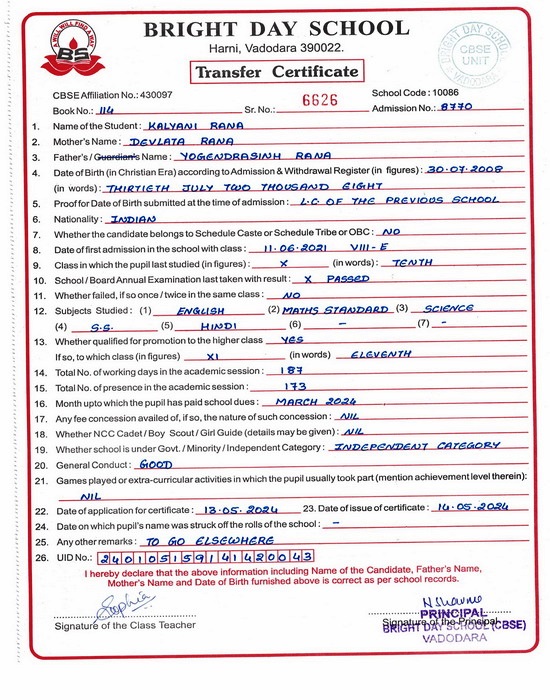 A WILL WILL FIND A WAY
BS
BRIGHT DAY SCHOOL
Harni, Vadodara 390022.
Transfer Certificate
BRIGHT DAY SCHOOL
CBSE
UNIT
VADODARA
CBSE Affiliation No.: 430097 School Code : 10086
Book No.: 114 Sr. No.: 6626 Admission No.: 8770
1. Name of the Student : KALYANI RANA
2. Mother's Name : DEVLATA RANA
3. Father's / Guardian's Name : YOGENDRASINH RANA
4. Date of Birth (in Christian Era) according to Admission & Withdrawal Register (in figures) : 30-07-2008
(in words) : THIRTIETH JULY TWO THOUSAND EIGHT
5. Proof for Date of Birth submitted at the time of admission : L.C OF THE PREVIOUS SCHOOL
6. Nationality : INDIAN
7. Whether the candidate belongs to Schedule Caste or Schedule Tribe or OBC : NO
8. Date of first admission in the school with class : 11.06.2021 VIII-E
9. Class in which the pupil last studied (in figures) : X (in words) : TENTH
10. School / Board Annual Examination last taken with result : X PASSED
11. Whether failed, if so once / twice in the same class : NO
12. Subjects Studied : (1) ENGLISH (2) MATHS STANDARD (3) SCIENCE
(4) S.S. (5) HINDI (6) - (7) -
13. Whether qualified for promotion to the higher class YES
If so, to which class (in figures) XI (in words) ELEVENTH
14. Total No. of working days in the academic session : 187
15. Total No. of presence in the academic session : 173
16. Month upto which the pupil has paid school dues : MARCH 2024
17. Any fee concession availed of, if so, the nature of such concession : NIL
18. Whether NCC Cadet / Boy Scout / Girl Guide (details may be given) : NIL
19. Whether school is under Govt. / Minority / Independent Category : INDEPENDENT CATEGORY
20. General Conduct : GOOD
21. Games played or extra-curricular activities in which the pupil usually took part (mention achievement level therein):
NIL
22. Date of application for certificate : 13.05.2024 23. Date of issue of certificate : 14.05.2024
24. Date on which pupil's name was struck off the rolls of the school : -
25. Any other remarks : TO GO ELSEWHERE
26. UID No.: 240105159141420043
I hereby declare that the above information including Name of the Candidate, Father's Name,
Mother's Name and Date of Birth furnished above is correct as per school records.
Sophia
Signature of the Class Teacher
Signature of the Principal
PRINCIPAL
BRIGHT DAY SCHOOL (CBSE)
VADODARA